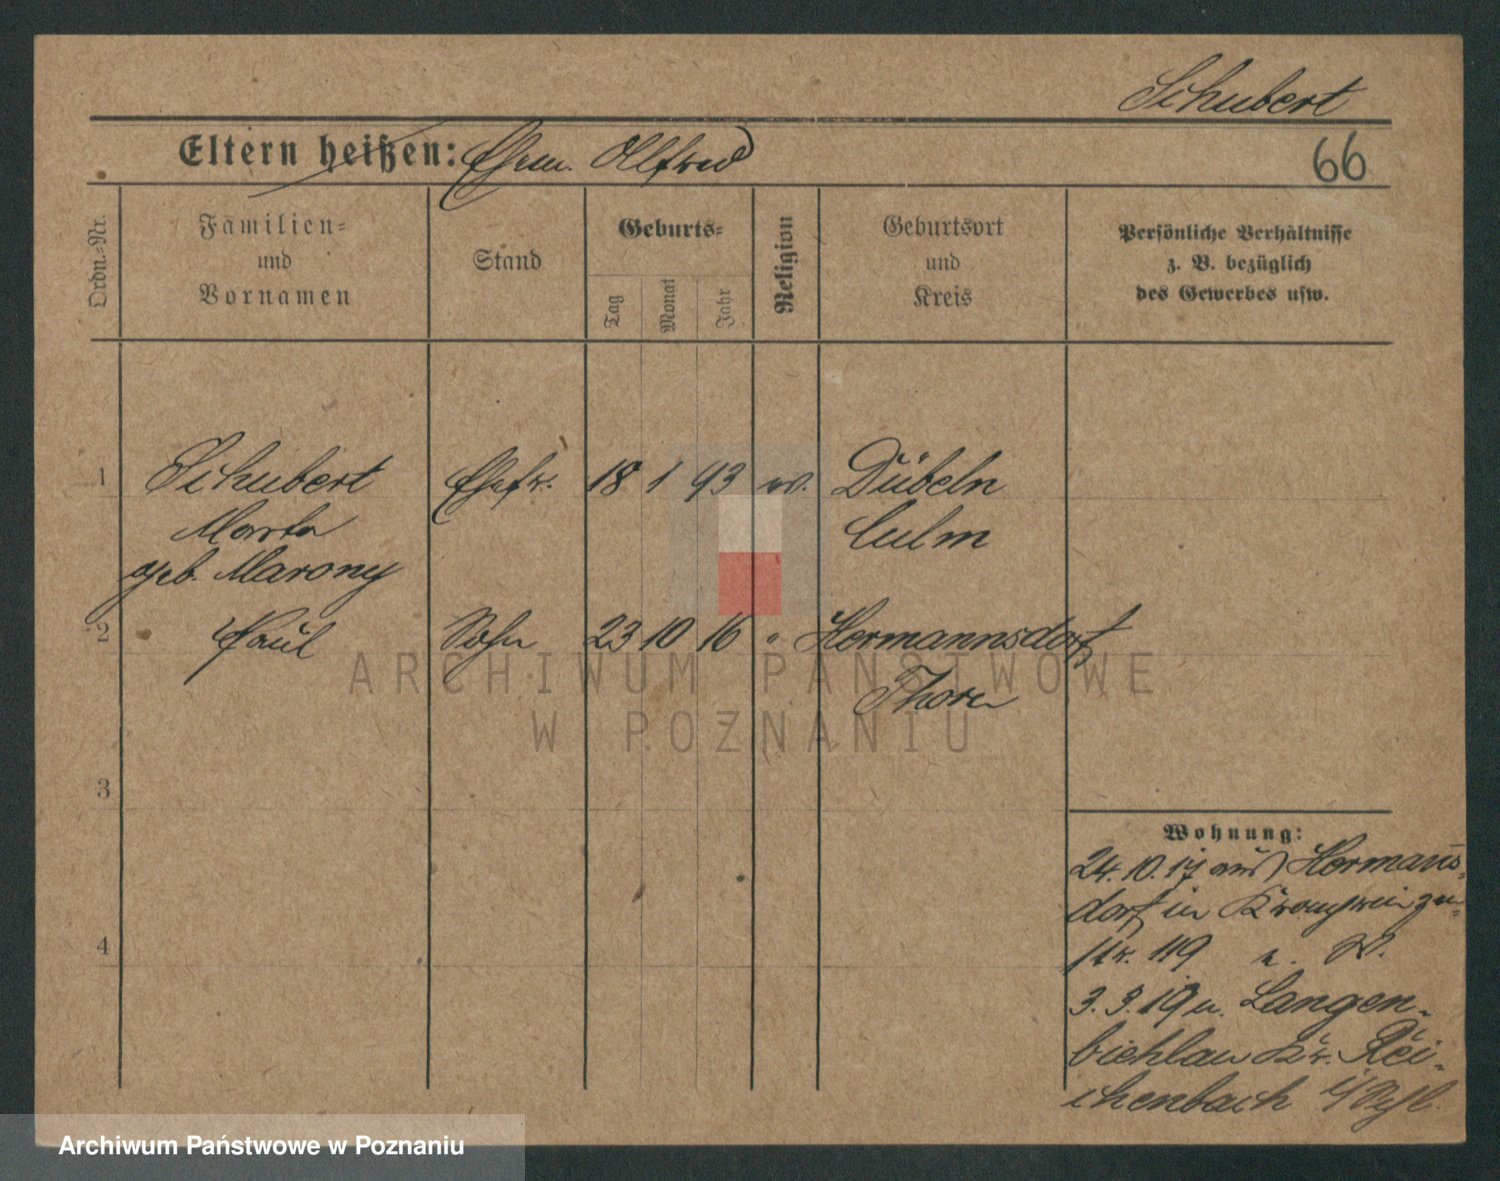 Schubert
Eltern heißen: Ehem. Alfred
66
Ordn.-Nr.
Familien-
und
Vornamen
Stand
Geburts-
Tag
Monat
Jahr
Religion
Geburtsort
und
Kreis
Persönliche Verhältnisse
z. B. bezüglich
des Gewerbes usw.
1 Schubert Ehefr. 18 1 93 ev. Dübeln
Marta Culm
geb. Marony
2 Paul Sohn 23 10 16 " Hermannsdorf
Thorn
3
4
Wohnung:
24.10.17 aus Hermanns-
dorf in
119 W.
3.3.19 n. Langen-
bichlau Kr. Rei-
chenbach i/
ARCHIWUM PAŃSTWOWE
W POZNANIU
Archiwum Państwowe w Poznaniu